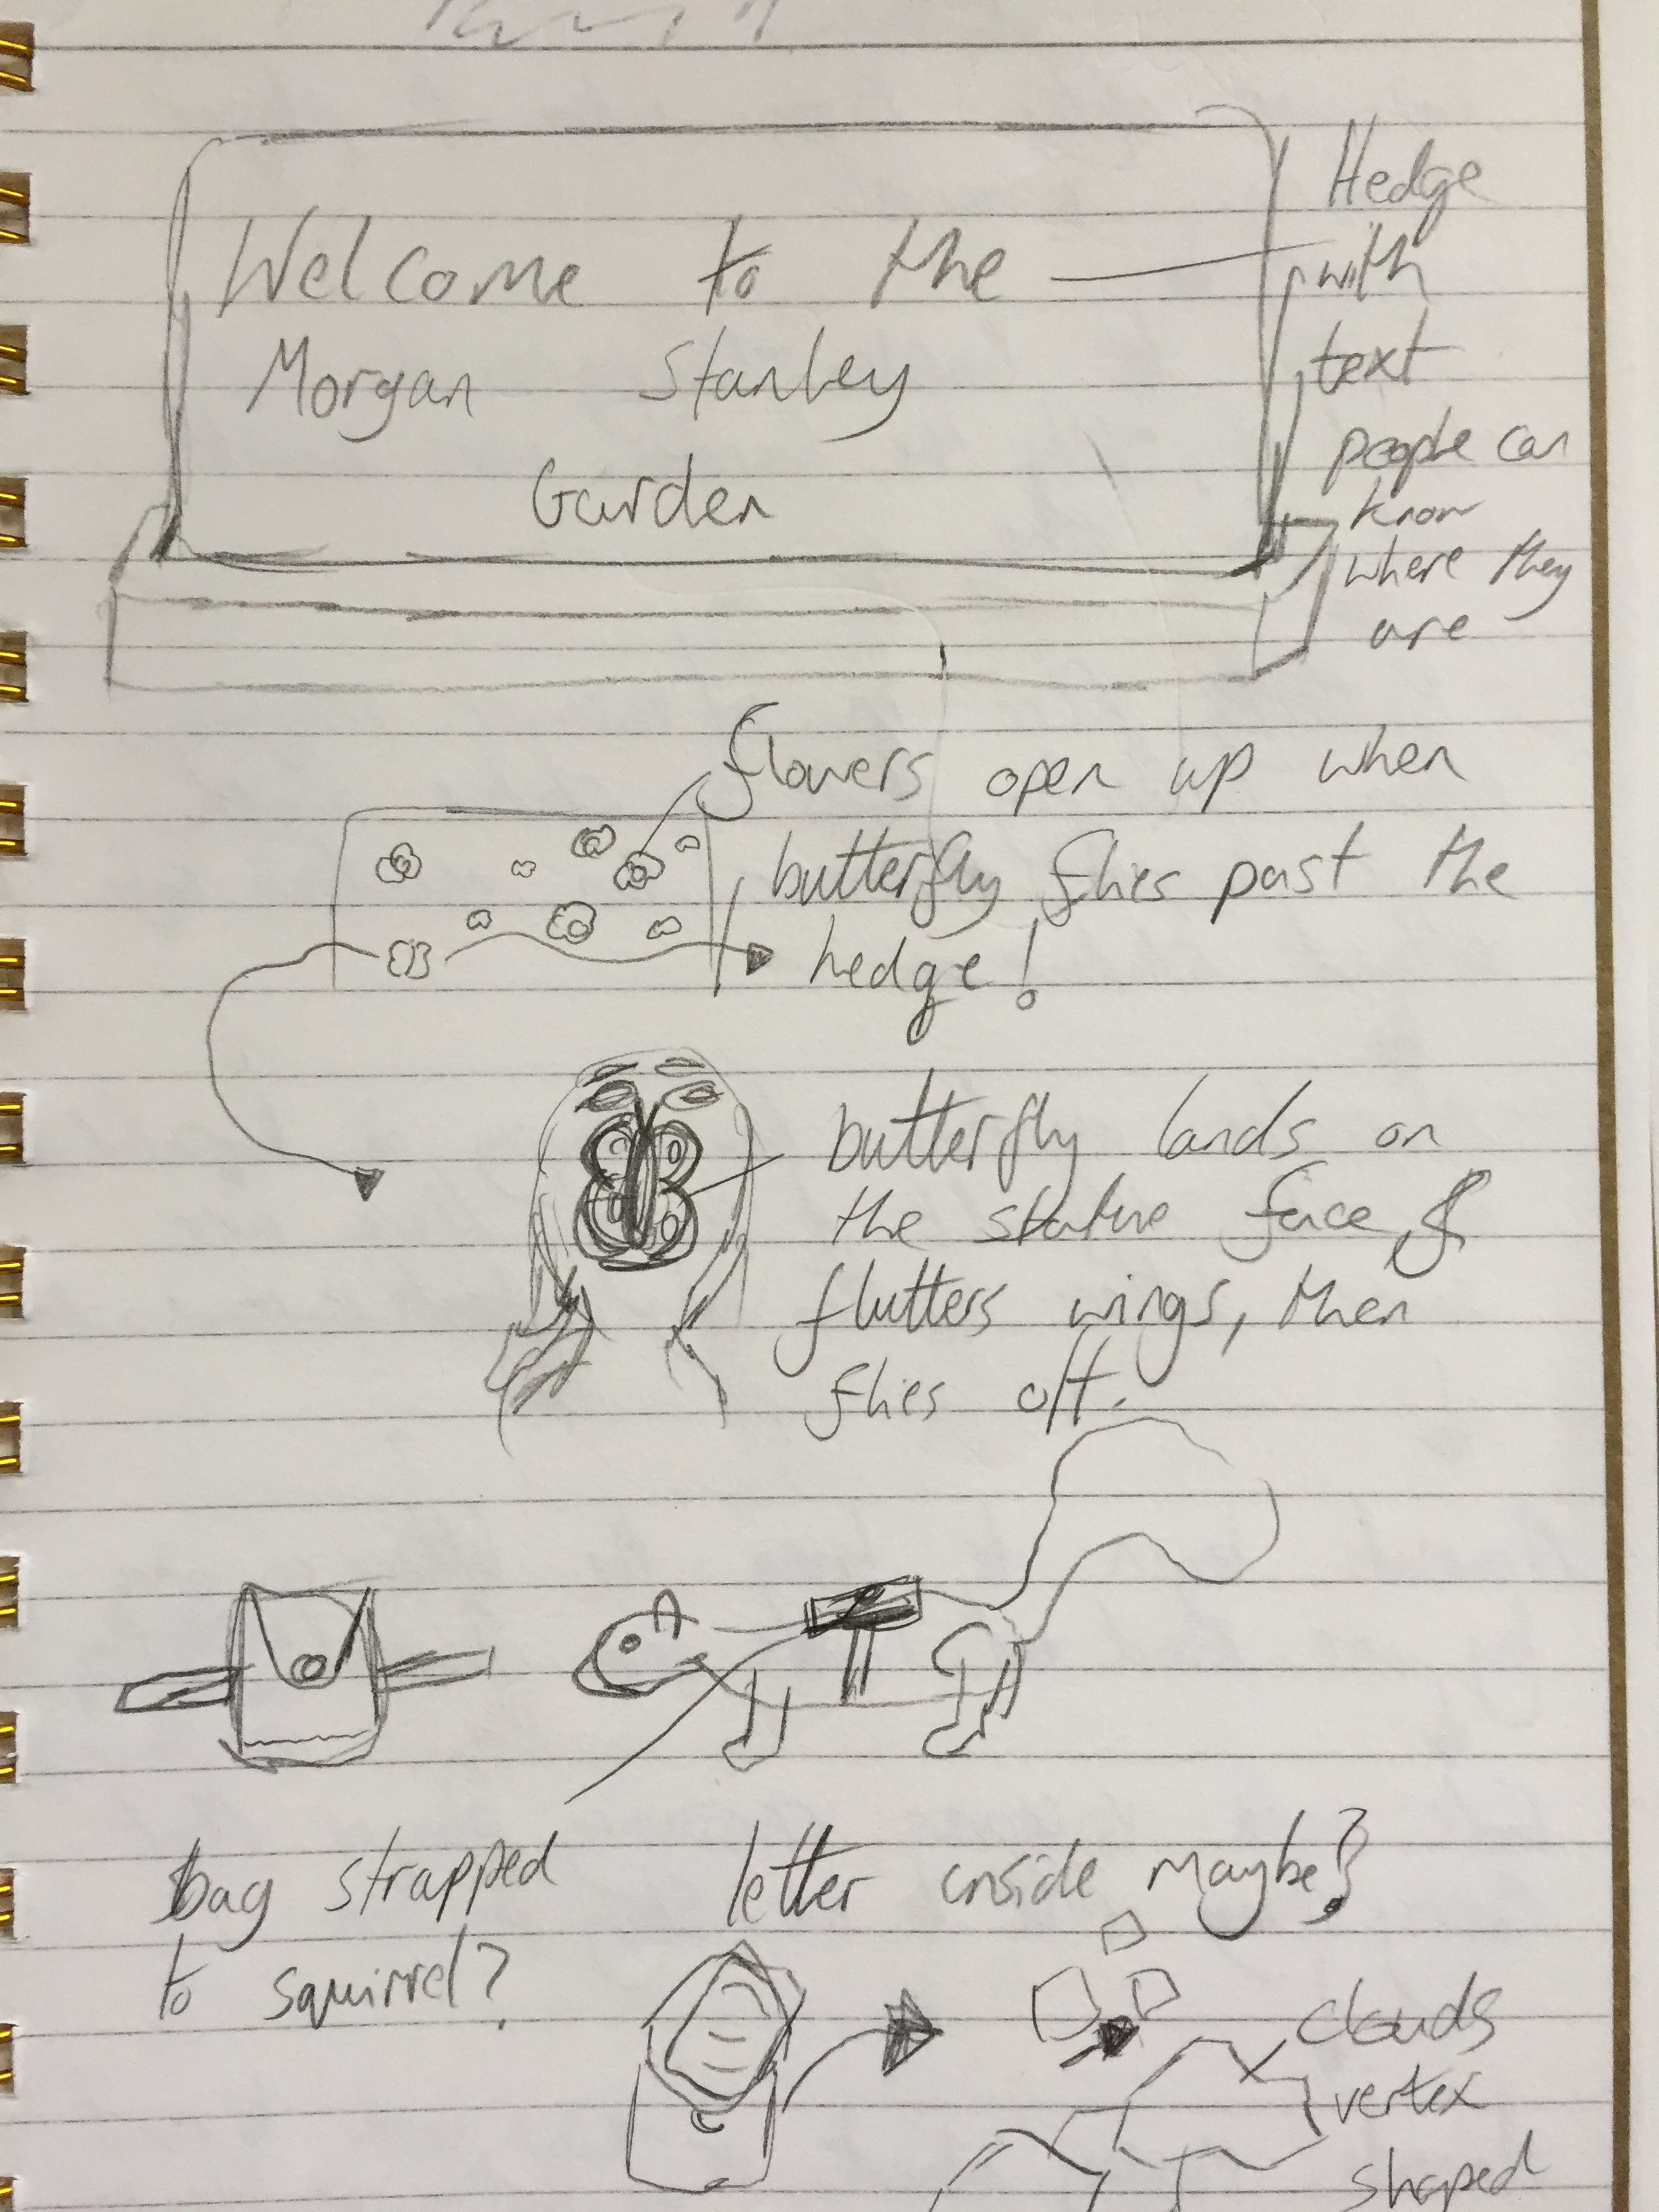 Welcome to the
Morgan Stanley
Garden
Hedge
with
text
people can
know
where they
are
flowers open up when
butterfly flies past the
hedge!
butterfly lands on
the statue face &
flutters wings, then
flies off.
bag strapped
to squirrel?
letter inside maybe?
clouds
vertex
shaped